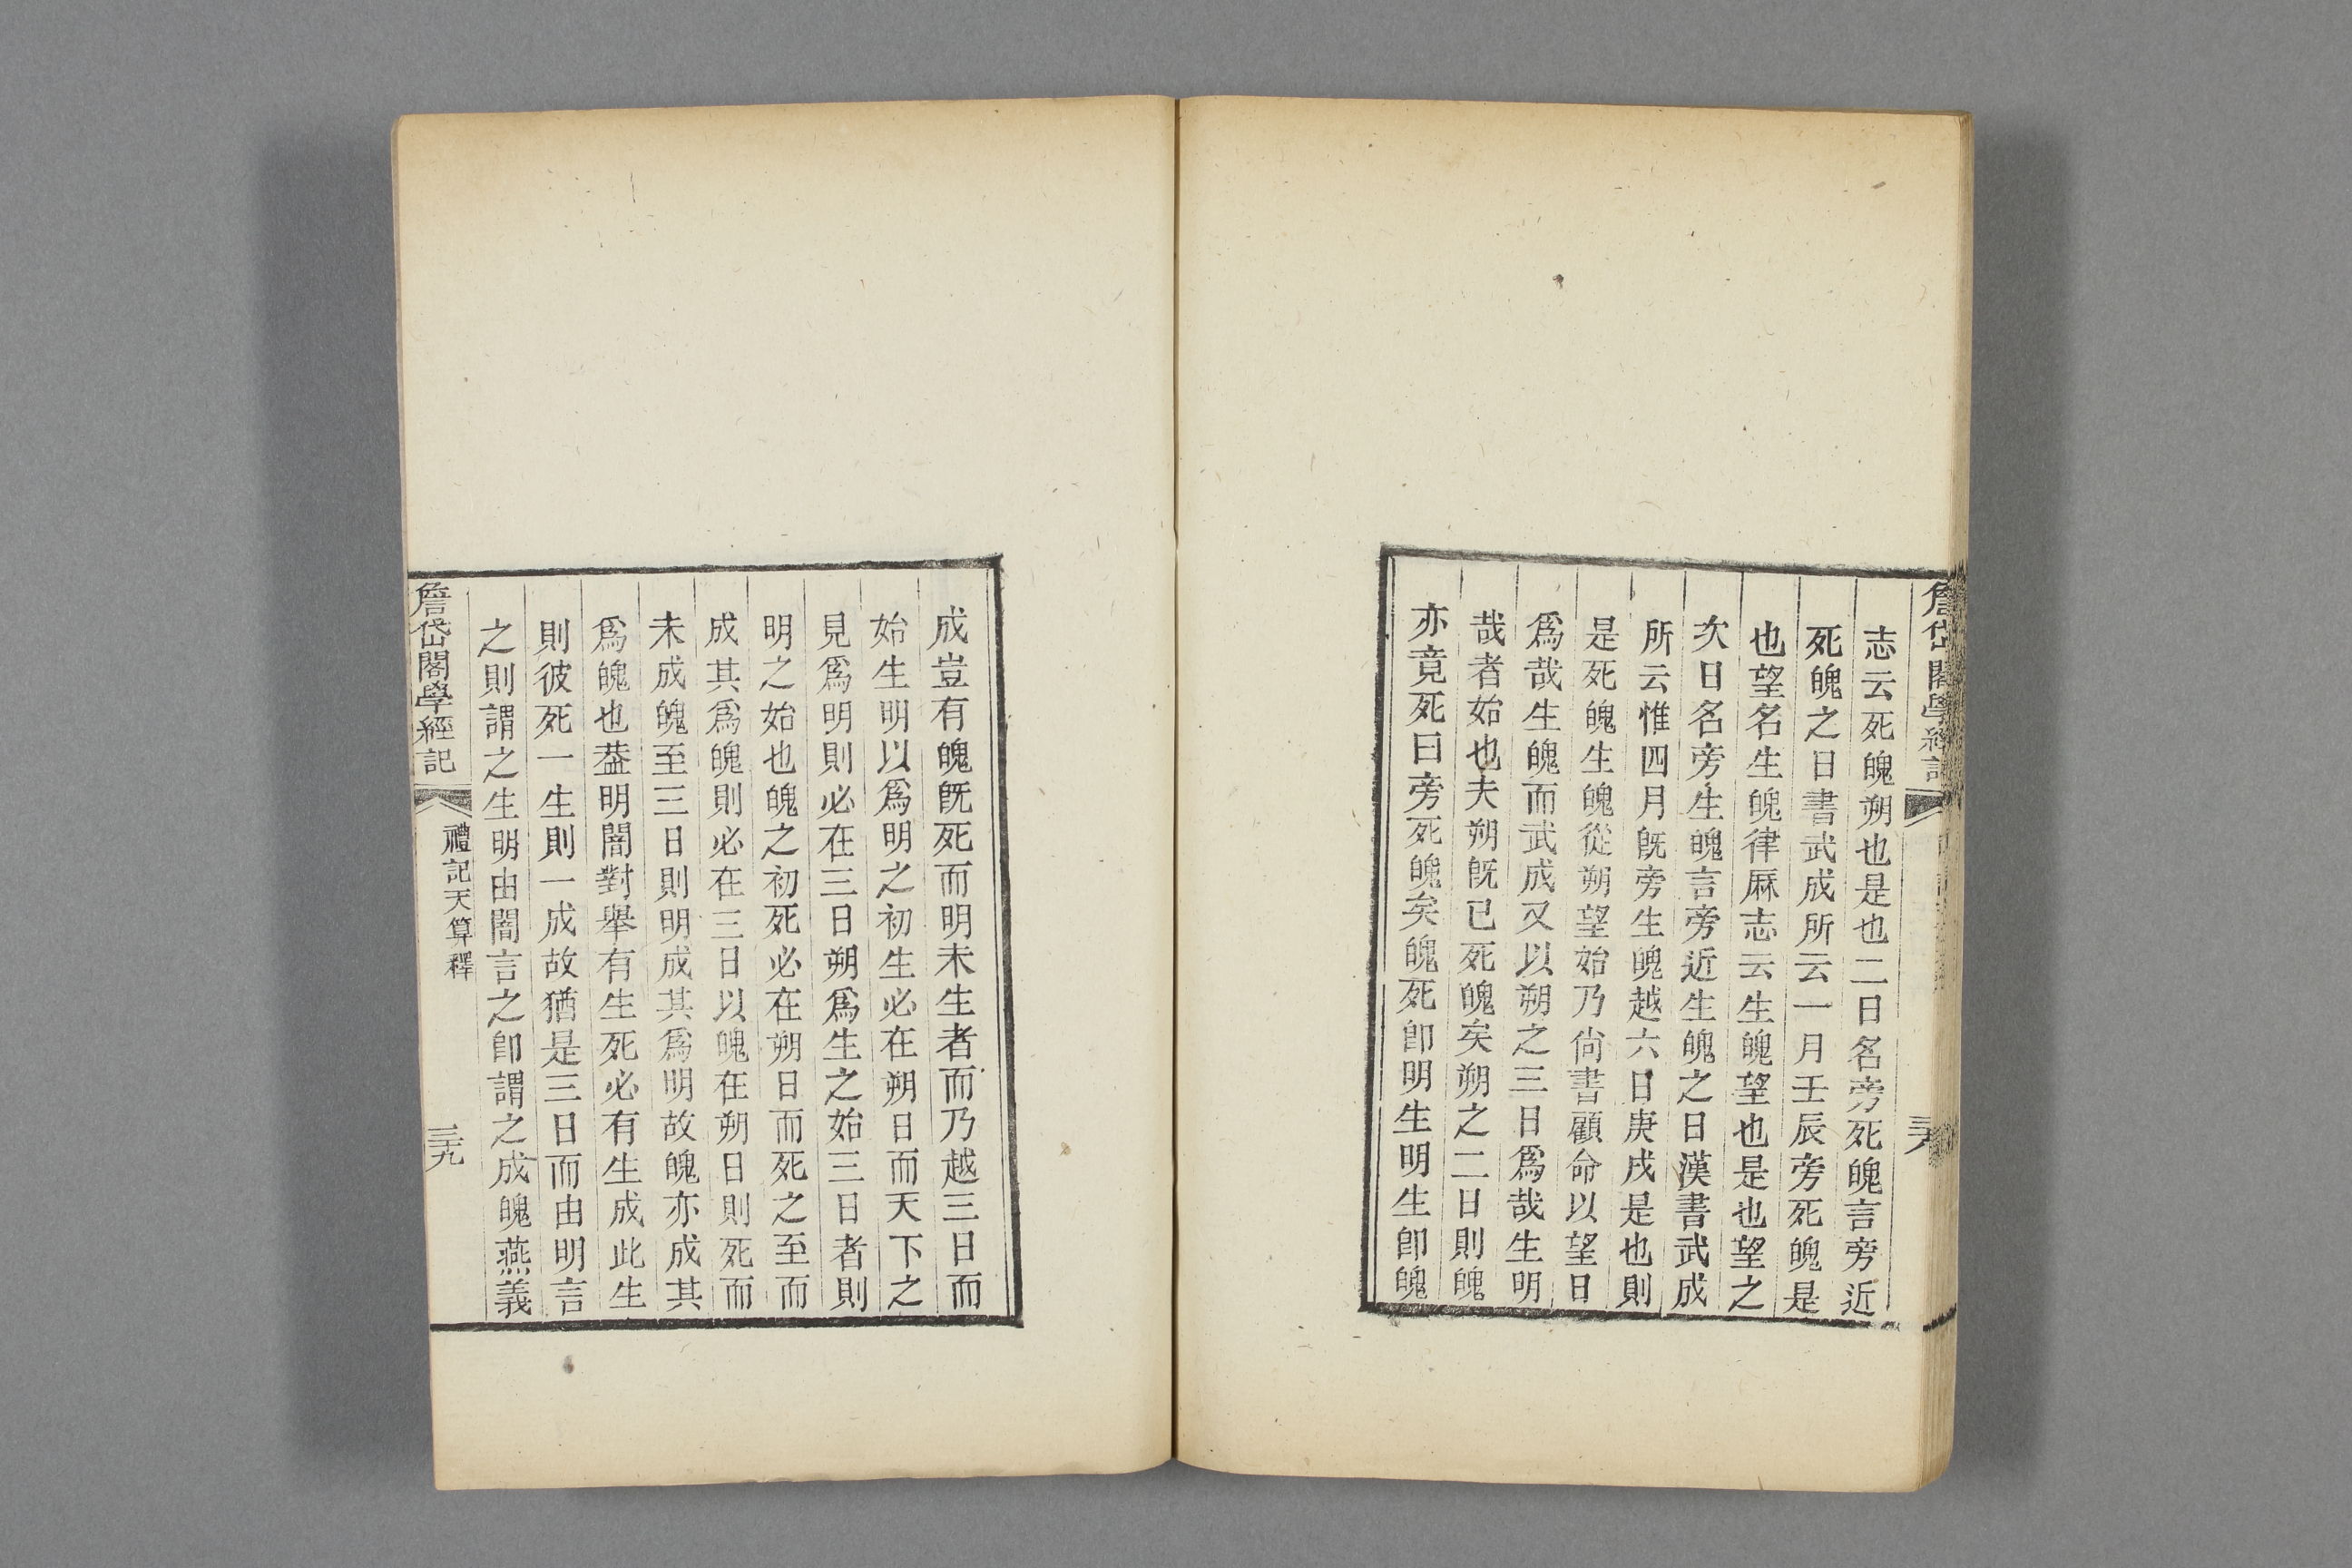 志云死魄朔也是也二日名旁死魄言旁近
死魄之日書武成所云一月壬辰旁死魄是
也望名生魄律厤志云生魄望也是也望之
次日名旁生魄言旁近生魄之日漢書武成
所云惟四月旣旁生魄越六日庚戌是也則
是死魄生魄從朔望始乃尙書顧命以望日
爲哉生魄而武成又以朔之三日爲哉生明
哉者始也夫朔旣已死魄矣朔之二日則魄
亦竟死曰旁死魄矣魄死卽明生明生卽魄
成豈有魄旣死而明未生者而乃越三日而
始生明以爲明之初生必在朔日而天下之
見爲明則必在三日朔爲生之始三日者則
明之始也魄之初死必在朔日而死之至而
成其爲魄則必在三日以魄在朔日則死而
未成魄至三日則明成其爲明故魄亦成其
爲魄也葢明闇對舉有生死必有生成此生
則彼死一生則一成故猶是三日而由明言
之則謂之生明由闇言之卽謂之成魄燕義
詹岱閣學經記
禮記天算釋
三十九